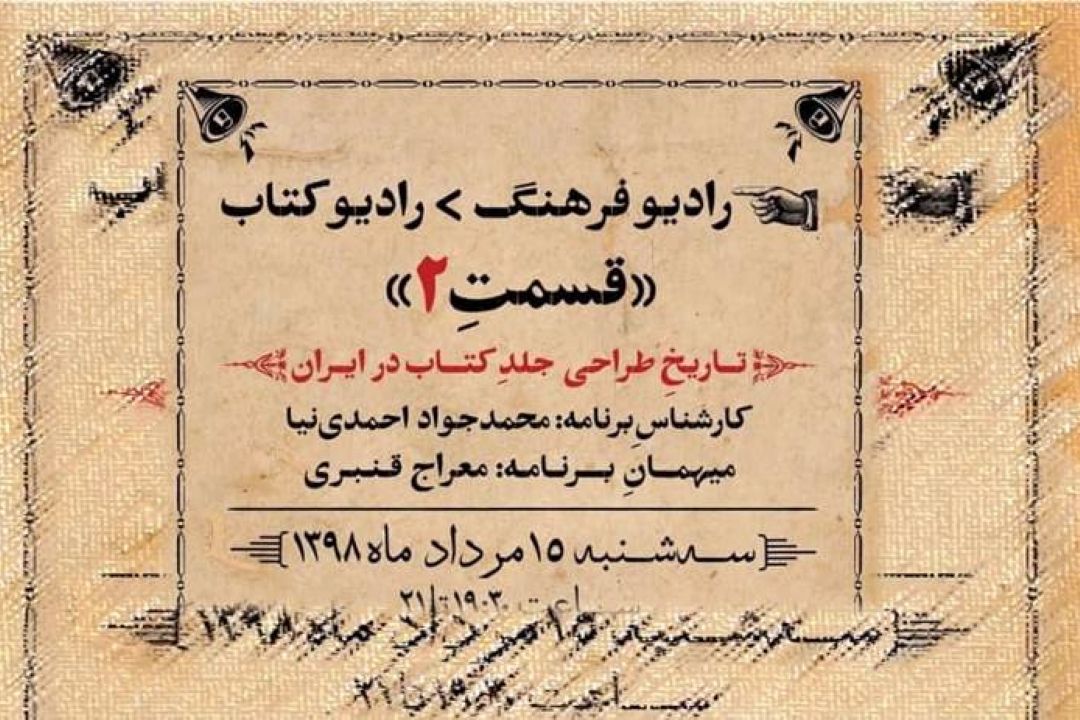 رادیو فرهنگ > رادیو کتاب
«قسمتِ ۲»
تاریخِ طراحی جلدِ کتاب در ایران
کارشناسِ برنامه: محمدجواد احمدی‌نیا
میهمانِ برنامه: معراج قنبری
سه‌شنبه ۱۵ مرداد ماه ۱۳۹۸